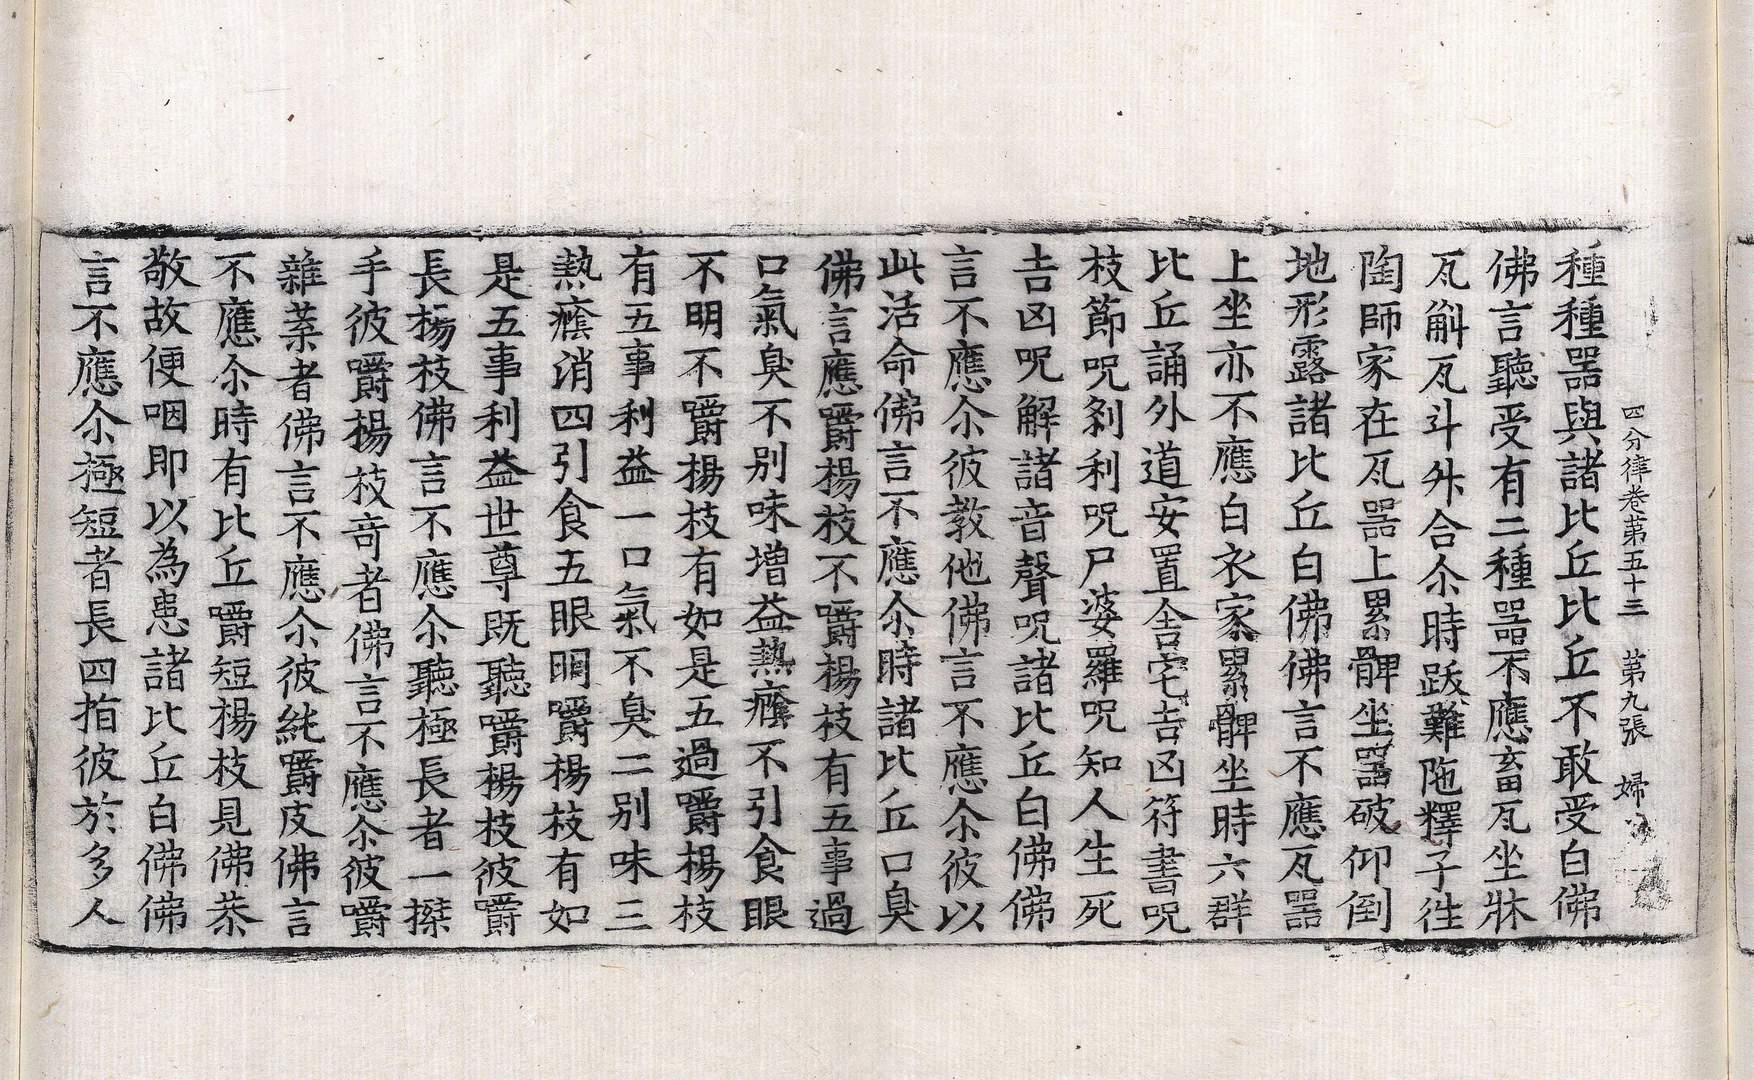 四分律卷第五十三 第九張 婦
種種噐與諸比丘比丘不敢受白佛
佛言聽受有二種噐不應畜瓦坐牀
瓦斛瓦斗外合尒時跋難陁釋子徃
陶師家在瓦噐上累髀坐噐破仰倒
地形露諸比丘白佛佛言不應瓦噐
上坐亦不應白衣家累髀坐時六群
比丘誦外道安置舍宅吉凶符書呪
枝節呪剎利呪尸婆羅呪知人生死
吉凶呪解諸音聲呪諸比丘白佛佛
言不應尒彼教他佛言不應尒彼以
此活命佛言不應尒時諸比丘口臭
佛言應嚼楊枝不嚼楊枝有五事過
口氣臭不別味增益熱癊不引食眼
不明不嚼楊枝有如是五過嚼楊枝
有五事利益一口氣不臭二別味三
熱癊消四引食五眼明嚼楊枝有如
是五事利益世尊既聽嚼楊枝彼嚼
長楊枝佛言不應尒聽極長者一搩
手彼嚼楊枝奇者佛言不應尒彼嚼
雜葉者佛言不應尒彼純嚼皮佛言
不應尒時有比丘嚼短楊枝見佛恭
敬故便咽即以為患諸比丘白佛佛
言不應尒極短者長四指彼於多人